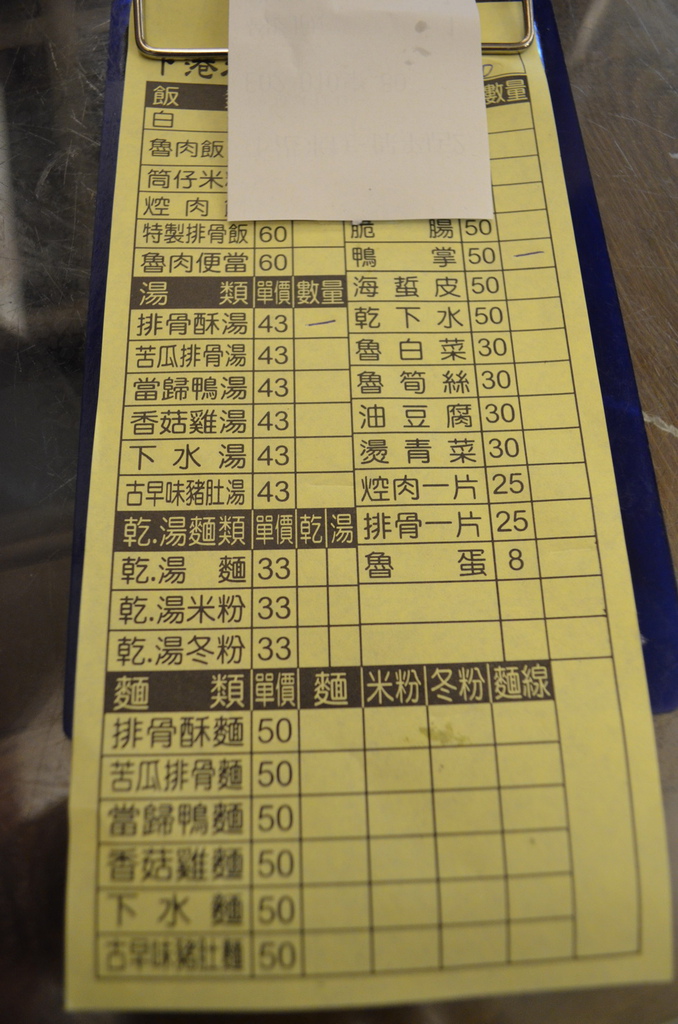 下港
飯 數量
白
魯肉飯
筒仔米
焢肉
特製排骨飯 60
魯肉便當 60
湯類 單價 數量
排骨酥湯 43 一
苦瓜排骨湯 43
當歸鴨湯 43
香菇雞湯 43
下水湯 43
古早味豬肚湯 43
乾.湯麵類 單價 乾 湯
乾.湯麵 33
乾.湯米粉 33
乾.湯冬粉 33
脆腸 50
鴨掌 50 一
海蜇皮 50
乾下水 50
魯白菜 30
魯筍絲 30
油豆腐 30
燙青菜 30
焢肉一片 25
排骨一片 25
魯蛋 8
麵類 單價 麵 米粉 冬粉 麵線
排骨酥麵 50
苦瓜排骨麵 50
當歸鴨麵 50
香菇雞麵 50
下水麵 50
古早味豬肚麵 50